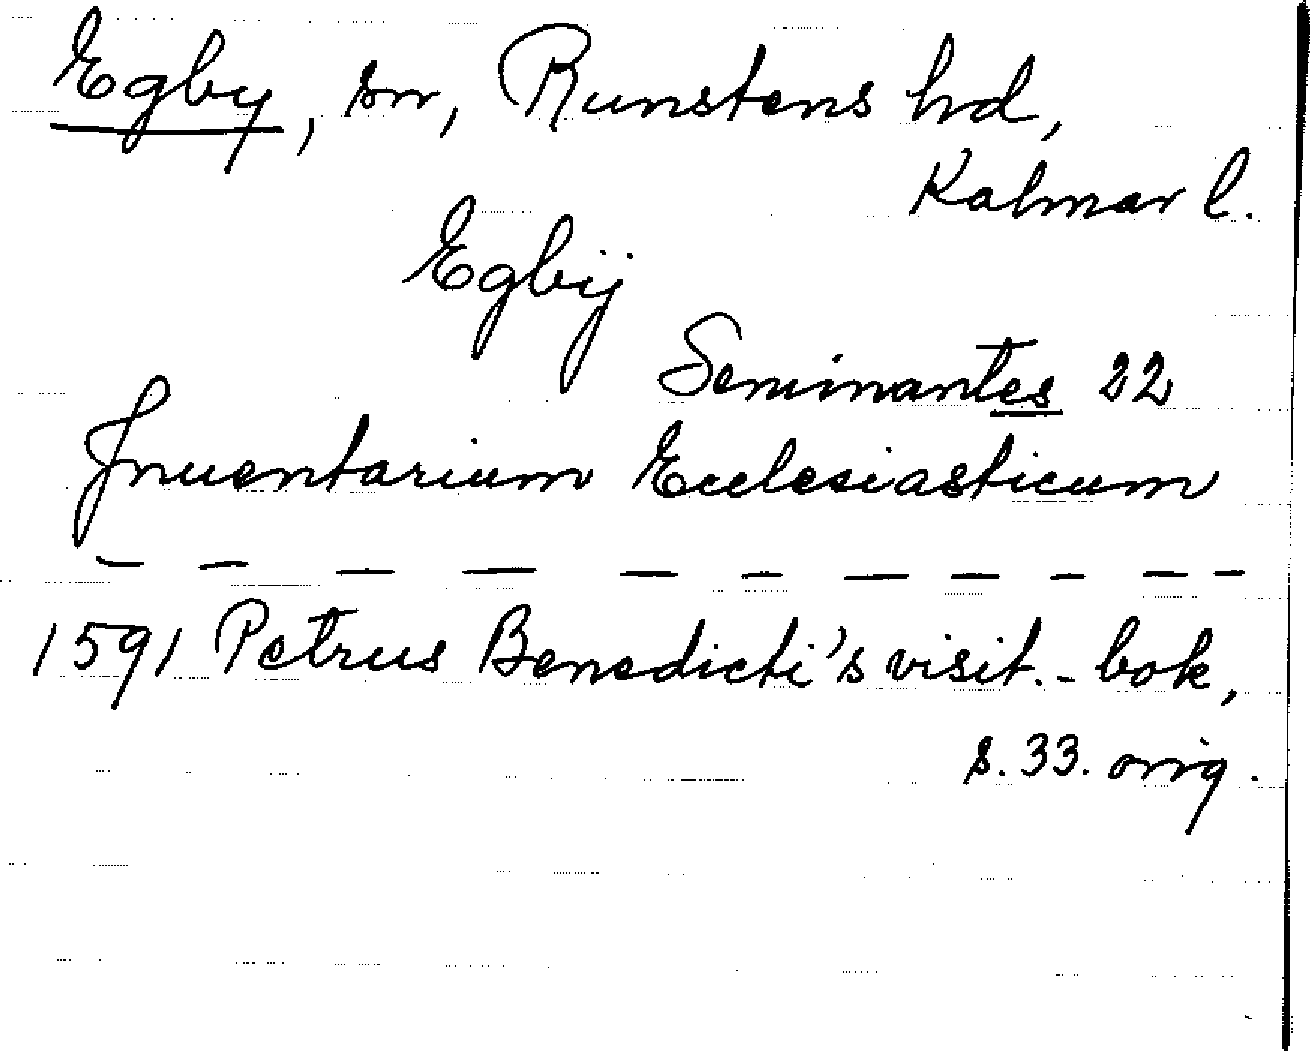 Egby, sn, Runstens hd,
Kalmar l.
Egbÿ
Seminantes 22
Inuentarium Ecclesiasticum
— — — — — — — — — — —
1591 Petrus Benedicti's visit.- bok,
s. 33. orig.